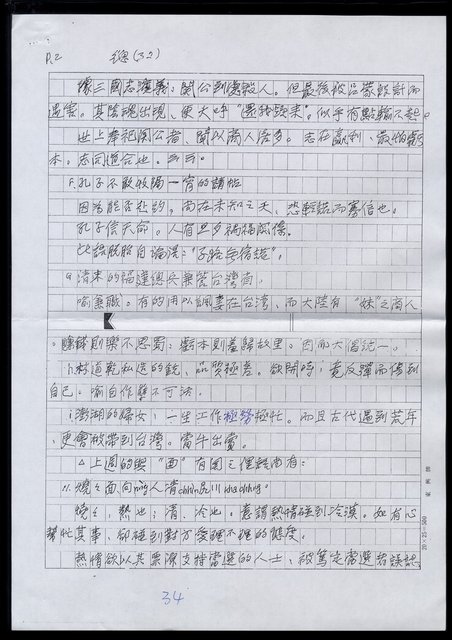 P.2 (32)
像三國志演義：關公到處殺人。但最後被呂蒙設計而
遇害。其陰魂出現、便大呼“還我頭來”。似乎有點輸不起。
世上奉祀關公者、閩以商人信多。志在贏利、最怕虧
本。志同道合也。云云。
F.孔子不敢收隔一宵的請帖
因為能否赴約，尚在未知之天、恐輕諾而寡信也。
孔子信天命。人有旦夕禍福關係。
此語脫胎自論語：“子路無宿諾”。
g.清末的福建總兵兼管台灣省。
喻兼職。有的用以諷妻在台灣、而大陸有“妹”之商人
。賺錢則樂不思蜀；虧本則羞歸故里。因而大傷流一。
h.林道乾私造的銃、品質極差。欲開時，竟反彈而傷到
自己。喻自作孽不可活。
i.澎湖的婦女，一生工作極勞極忙。而且古代遇到荒年
、更會被帶到台灣。當牛出賣。
△上週的與“面”有關之俚語尚有：
燒々面向 人清
燒々，熱也；清、冷也。意謂熱情碰到冷漠。如有心
幫忙某事、卻碰到對方愛理不理的態度。
熱情欲以其票源支持當選的人士、被篤定當選者誤認
20×25=500
34